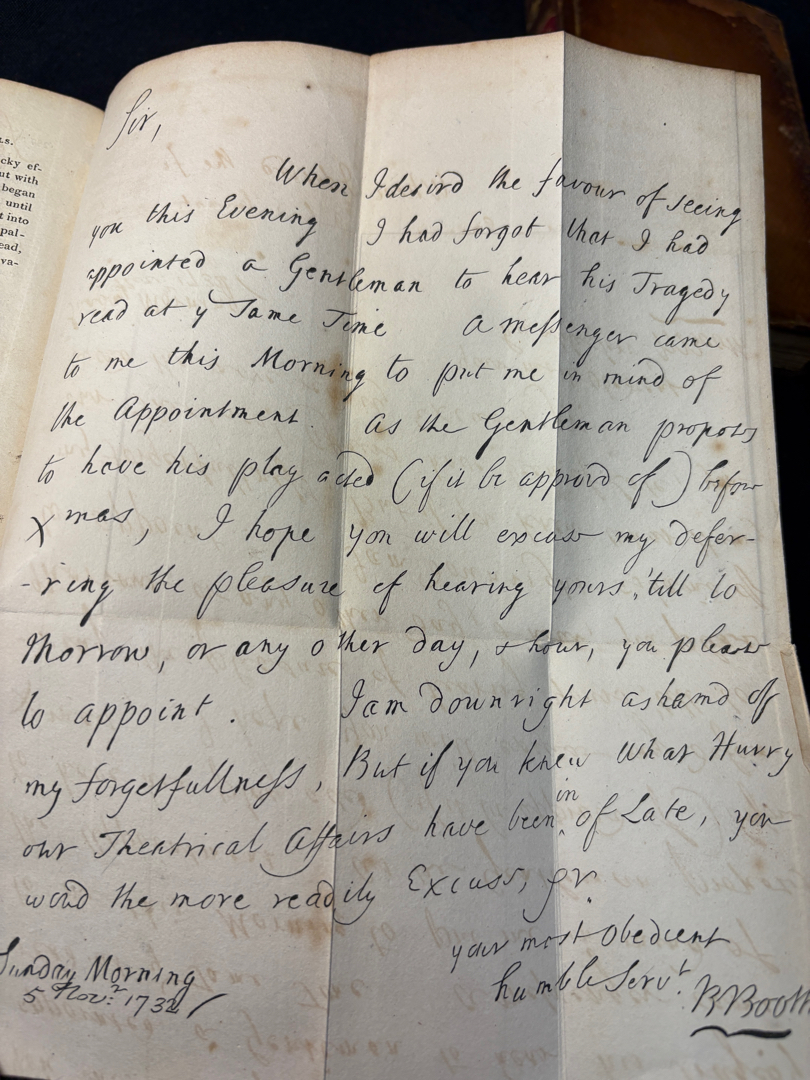 LS.
cky ef-
ut with
began
until
t into
pal-
ead,
va-
Sir,
When I desir'd the favour of seeing
you this Evening I had forgot that I had
appointed a Gentleman to hear his Tragedy
read at yͤ Same Time A messenger came
to me this Morning to put me in mind of
the Appointment. As the Gentleman proposes
to have his play acted (if it be approv'd of) before
Xmas, I hope you will excuse my defer-
-ring the pleasure of hearing yours, 'till to
Morrow, or any other day, & hour, you please
to appoint. I am downright asham'd of
my forgetfullness, But if you knew What Hurry
our Theatrical Affairs have been in of Late, you
wou'd the more readily Excuse, Sr.
your most Obedient
humble Servt.
BBooth
Sunday Morning
5 Novr. 1732